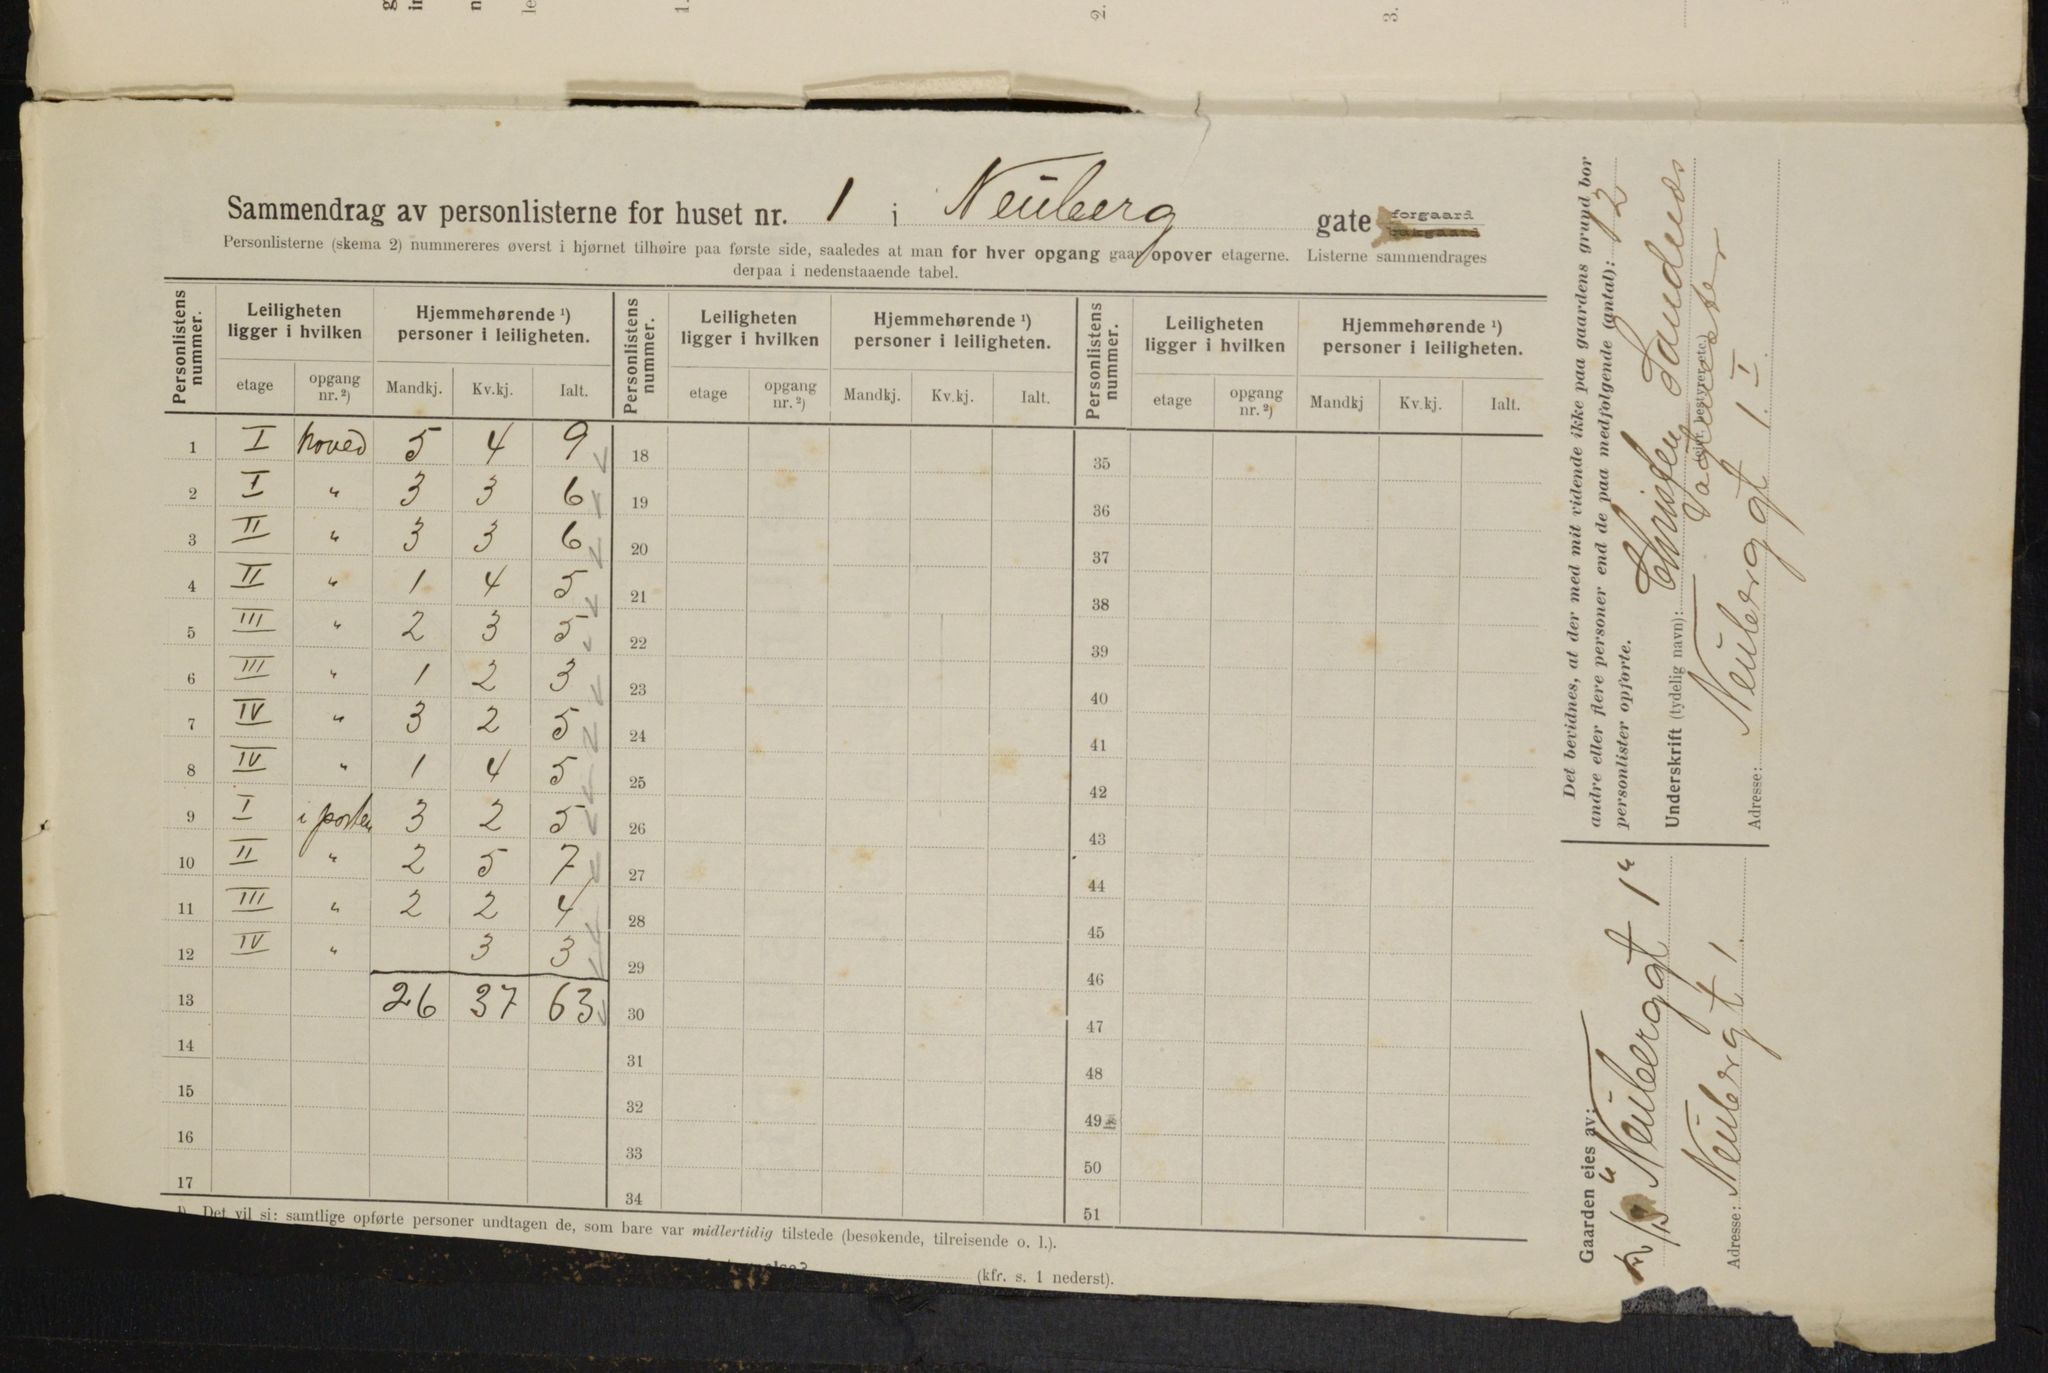 Sammendrag av personlisterne for huset nr. 1 i Neuberg gate forgaard bakgaard
Personlisterne (skema 2) nummereres øverst i hjørnet tilhøire paa første side, saaledes at man for hver opgang gaar opover etagerne. Listerne sammendrages
derpaa i nedenstaaende tabel.
Personlistens nummer. Leiligheten ligger i hvilken Hjemmehørende ¹) personer i leiligheten. Personlistens nummer. Leiligheten ligger i hvilken Hjemmehørende ¹) personer i leiligheten. Personlistens nummer. Leiligheten ligger i hvilken Hjemmehørende ¹) personer i leiligheten.
etage opgang nr. ²) Mandkj. Kv.kj. Ialt. etage opgang nr. ²) Mandkj. Kv.kj. Ialt. etage opgang nr. ²) Mandkj Kv.kj. Ialt.
1 I hoved 5 4 9 18 35
2 I " 3 3 6 19 36
3 II " 3 3 6 20 37
4 II " 1 4 5 21 38
5 III " 2 3 5 22 39
6 III " 1 2 3 23 40
7 IV " 3 2 5 24 41
8 IV " 1 4 5 25 42
9 I i porten 3 2 5 26 43
10 II " 2 5 7 27 44
11 III " 2 2 4 28 45
12 IV " 3 3 29 46
13 26 37 63 30 47
14 31 48
15 32 49
16 33 50
17 34 51
¹) Det vil si: samtlige opførte personer undtagen de, som bare var midlertidig tilstede (besøkende, tilreisende o. l.).
(kfr. s. 1 nederst).
Det bevidnes, at der med mit vidende ikke paa gaardens grund bor
andre eller flere personer end de paa medfølgende (antal): 12
personlister opførte.
Underskrift (tydelig navn): Christen Sandnes
(eier, bestyrer etc.)
Vagtmester
Adresse: Neuberggt 1. I.
Gaarden eies av:
A/S "Neuberggt 1"
Adresse: Neubergt 1.